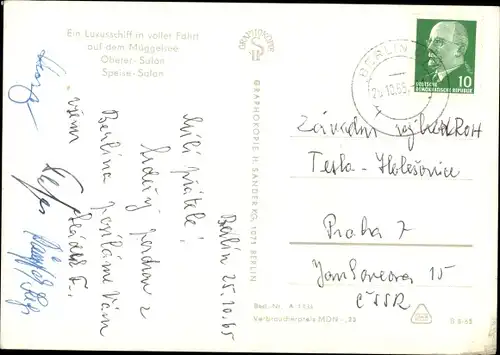 Ein Luxusschiff in voller Fahrt
auf dem Müggelsee
Oberer-Salon
Speise-Salon
GRAPHOKOPIE
GRAPHOKOPIE H. SANDER KG, 1071 BERLIN
Berlín 25.10.65
Milí přátelé!
Srdečný pozdrav z
Berlína posíláme Vám
všem
BERLIN
25.10.65
10
DEUTSCHE
DEMOKRATISCHE REPUBLIK
Závodní výbor ROH
Tesla - Holešovice
Praha 7
Jankovcova 15
ČSSR
Best.-Nr. A
Verbraucherpreis MDN -,25